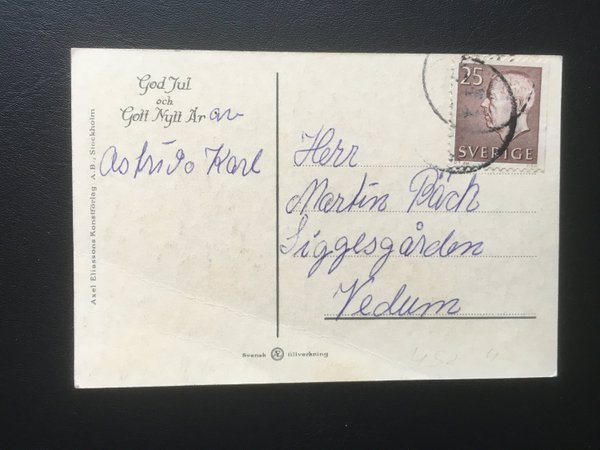 God Jul
och
Gott Nytt År av
Astrid o Karl
Axel Eliassons Konstförlag A.B., Stockholm
25
SVERIGE
Herr
Martin Bäck
Siggesgården
Vedum
Svensk Æ tillverkning